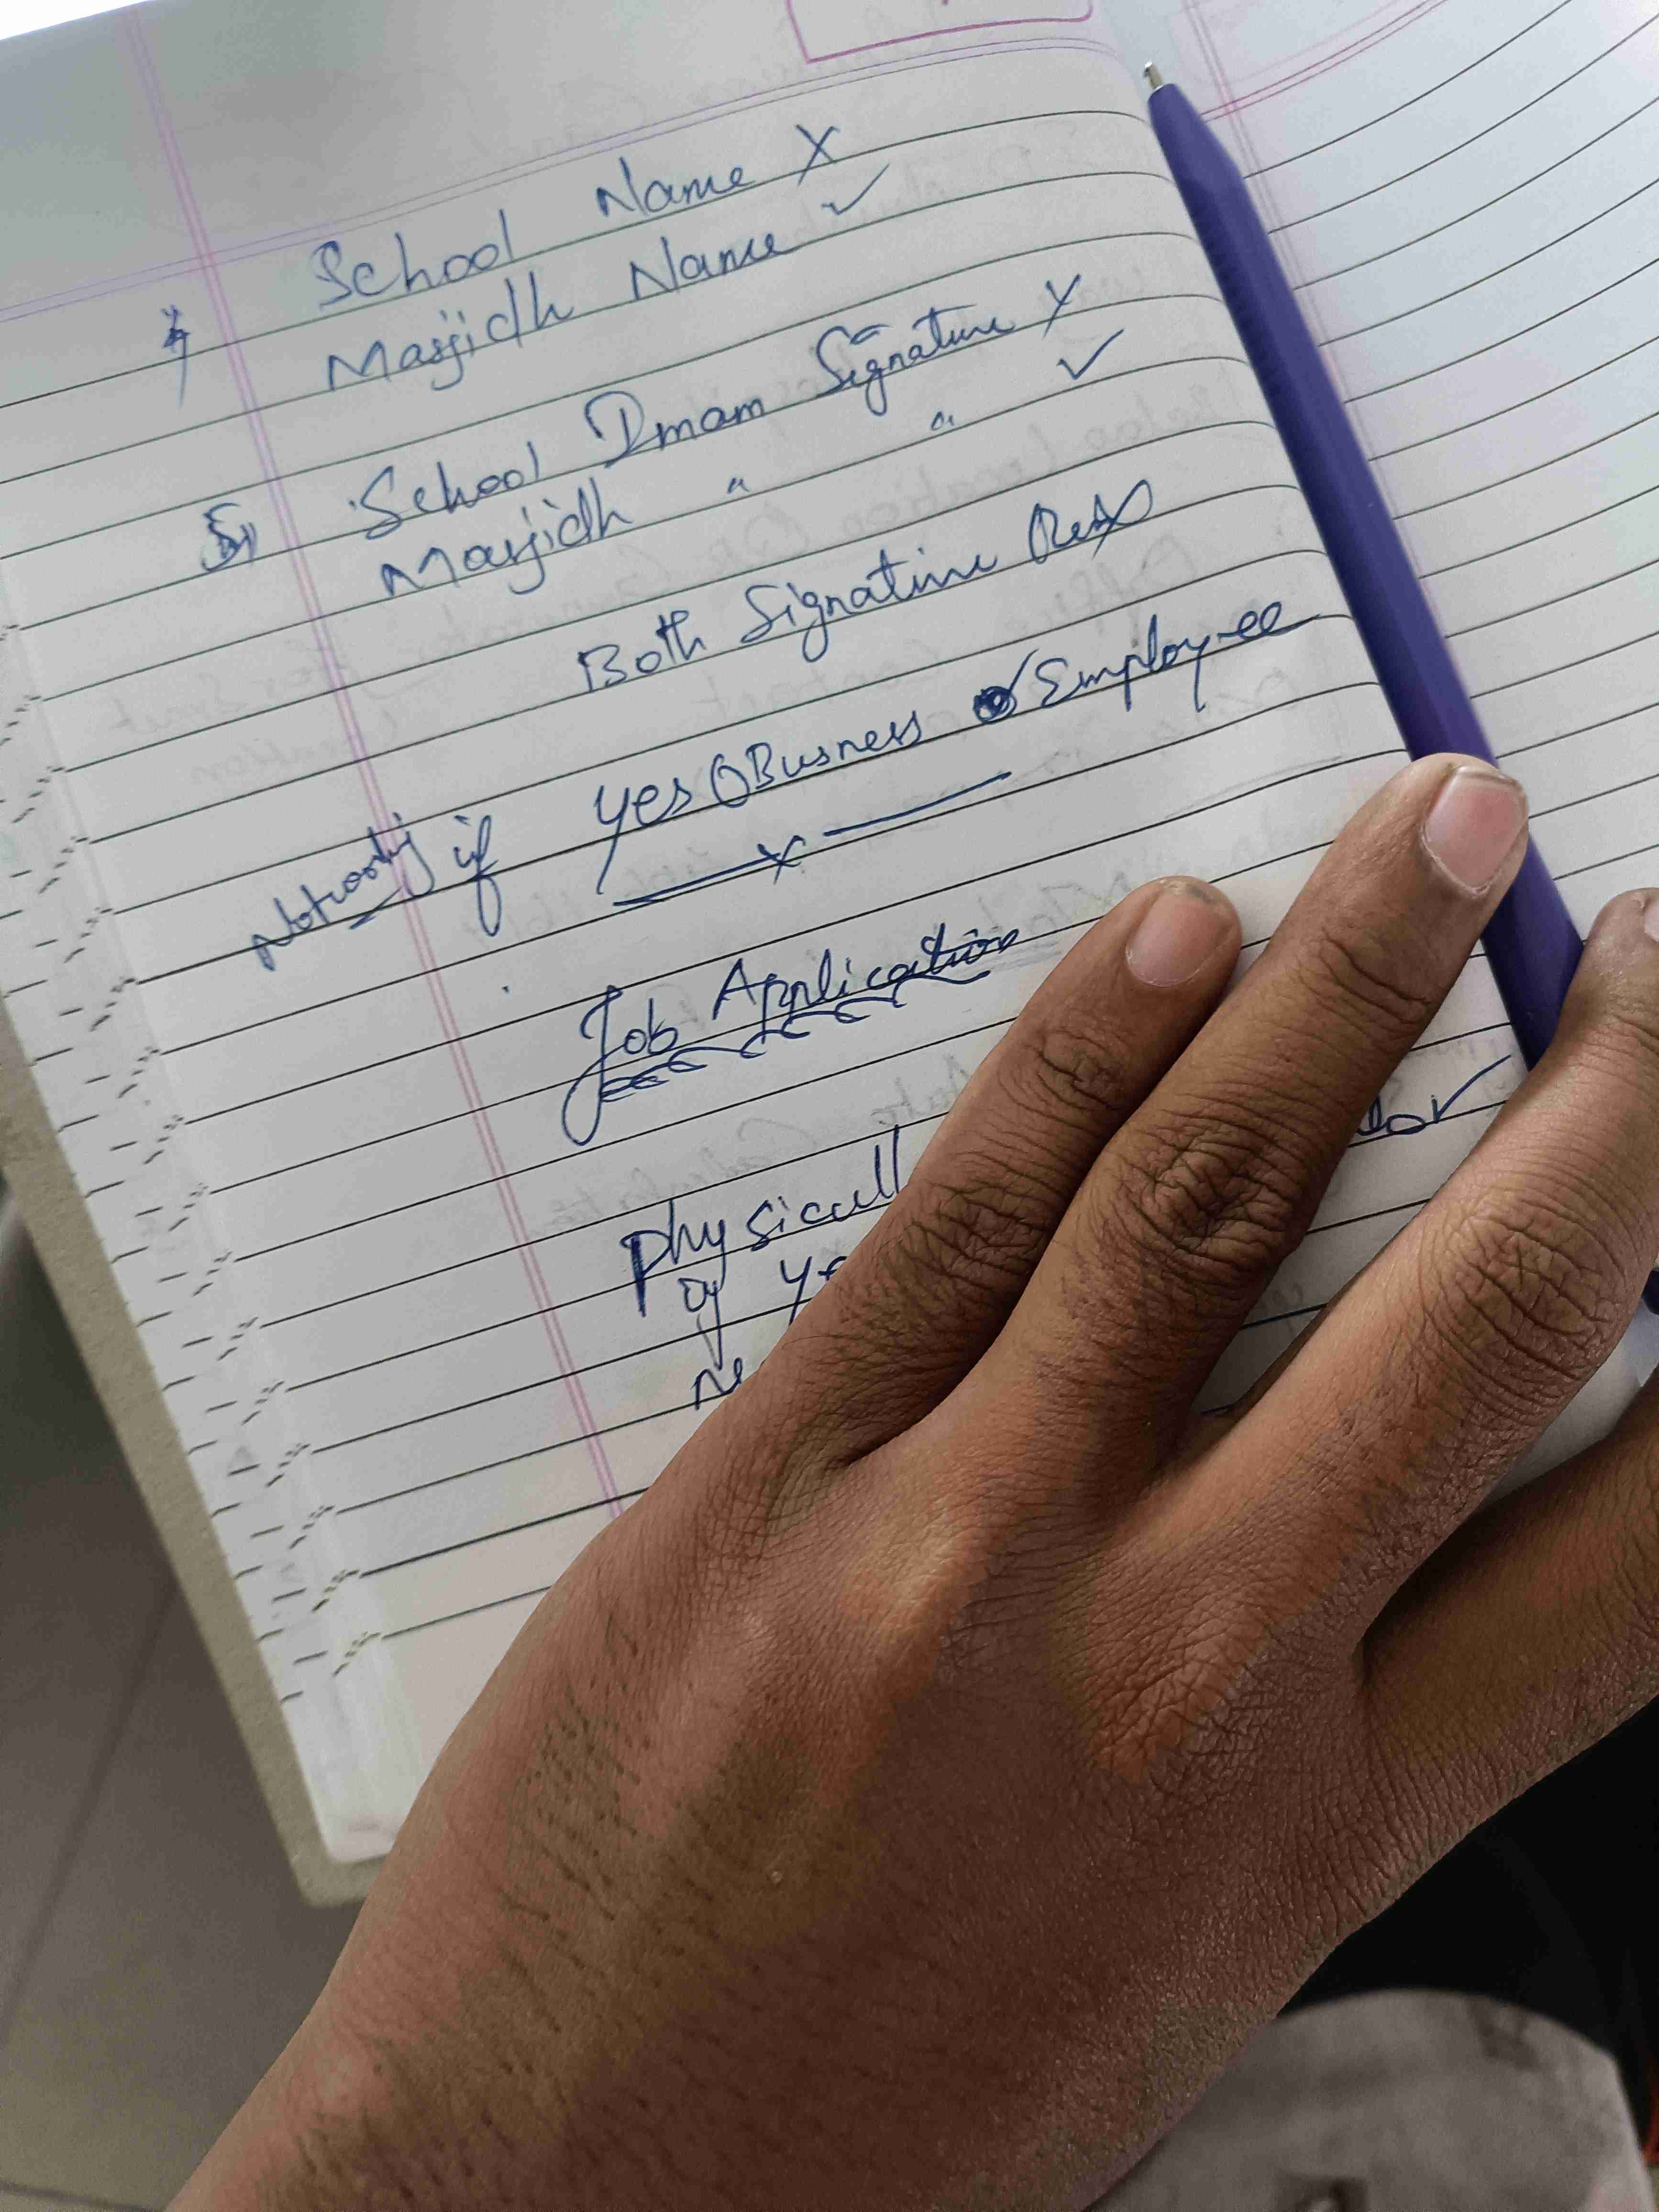 4) School Name X
Masjidh Name ✓
5) School Imam Signature X
Masjidh " " ✓
Both Signature
Not working if yes O Busness ✓ Employee
x
Job Application
physicall
if ye
ne